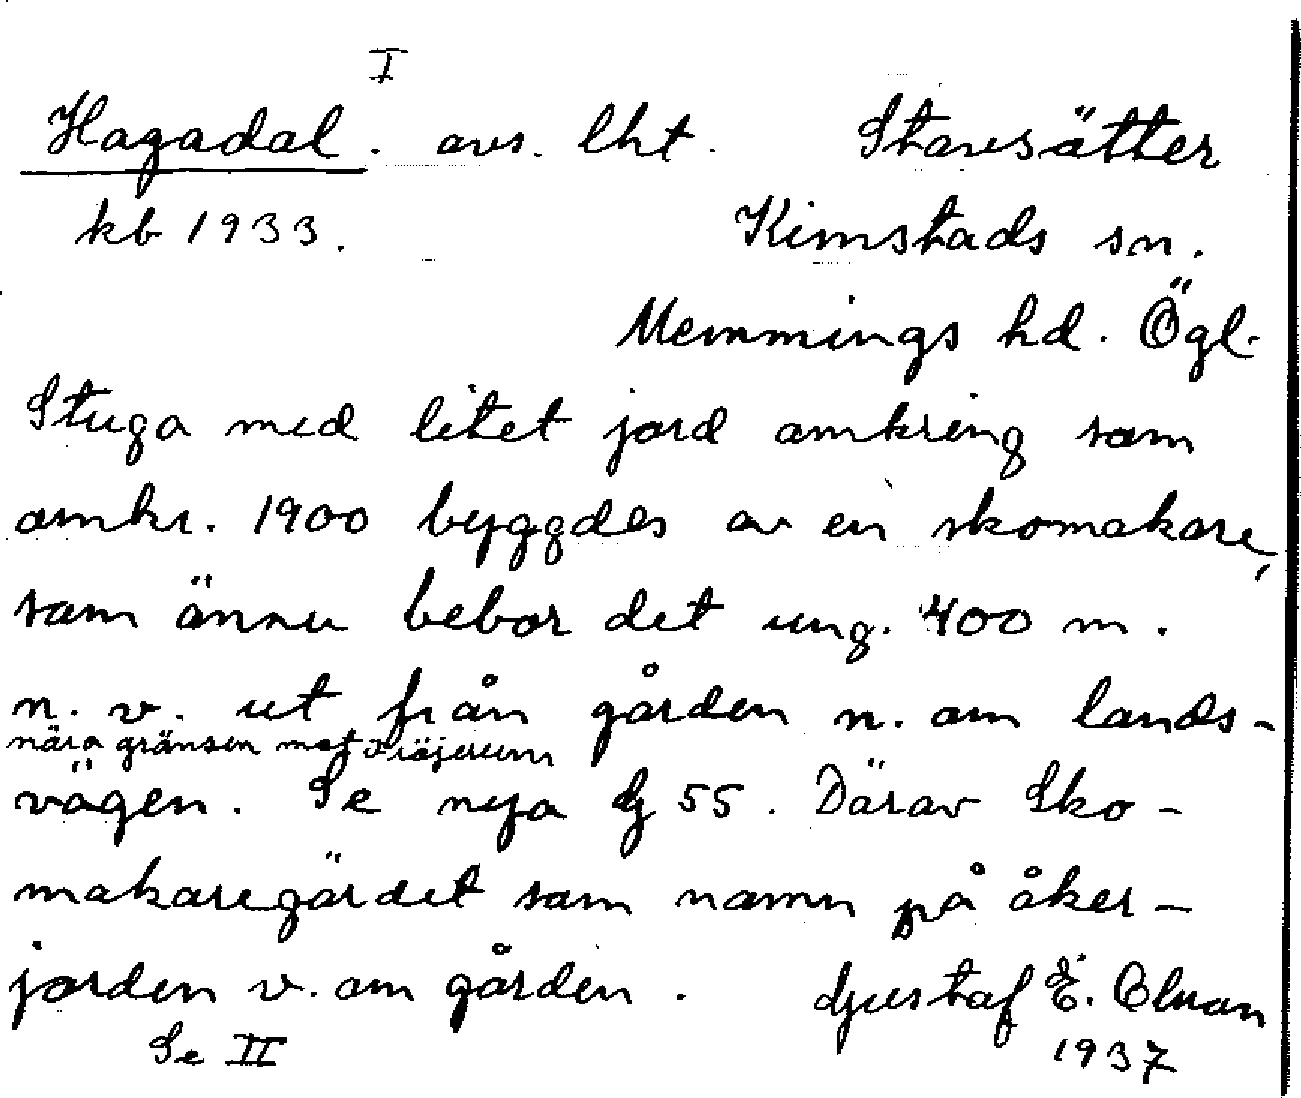 I
Hagadal. avs. lht. Stavsätter
kb 1933. Kimstads sn.
Memmings hd. Ögl.
Stuga med litet jord omkring som
omkr. 1900 byggdes av en skomakare,
som ännu bebor det ung. 400 m.
n. v. ut från gården n. om lands-
nära gränsen mot Fröjerum
vägen. Se nya G 55. Därav Sko-
makaregärdet som namn på åker-
jorden v. om gården. Gustaf E.
Se II 1937